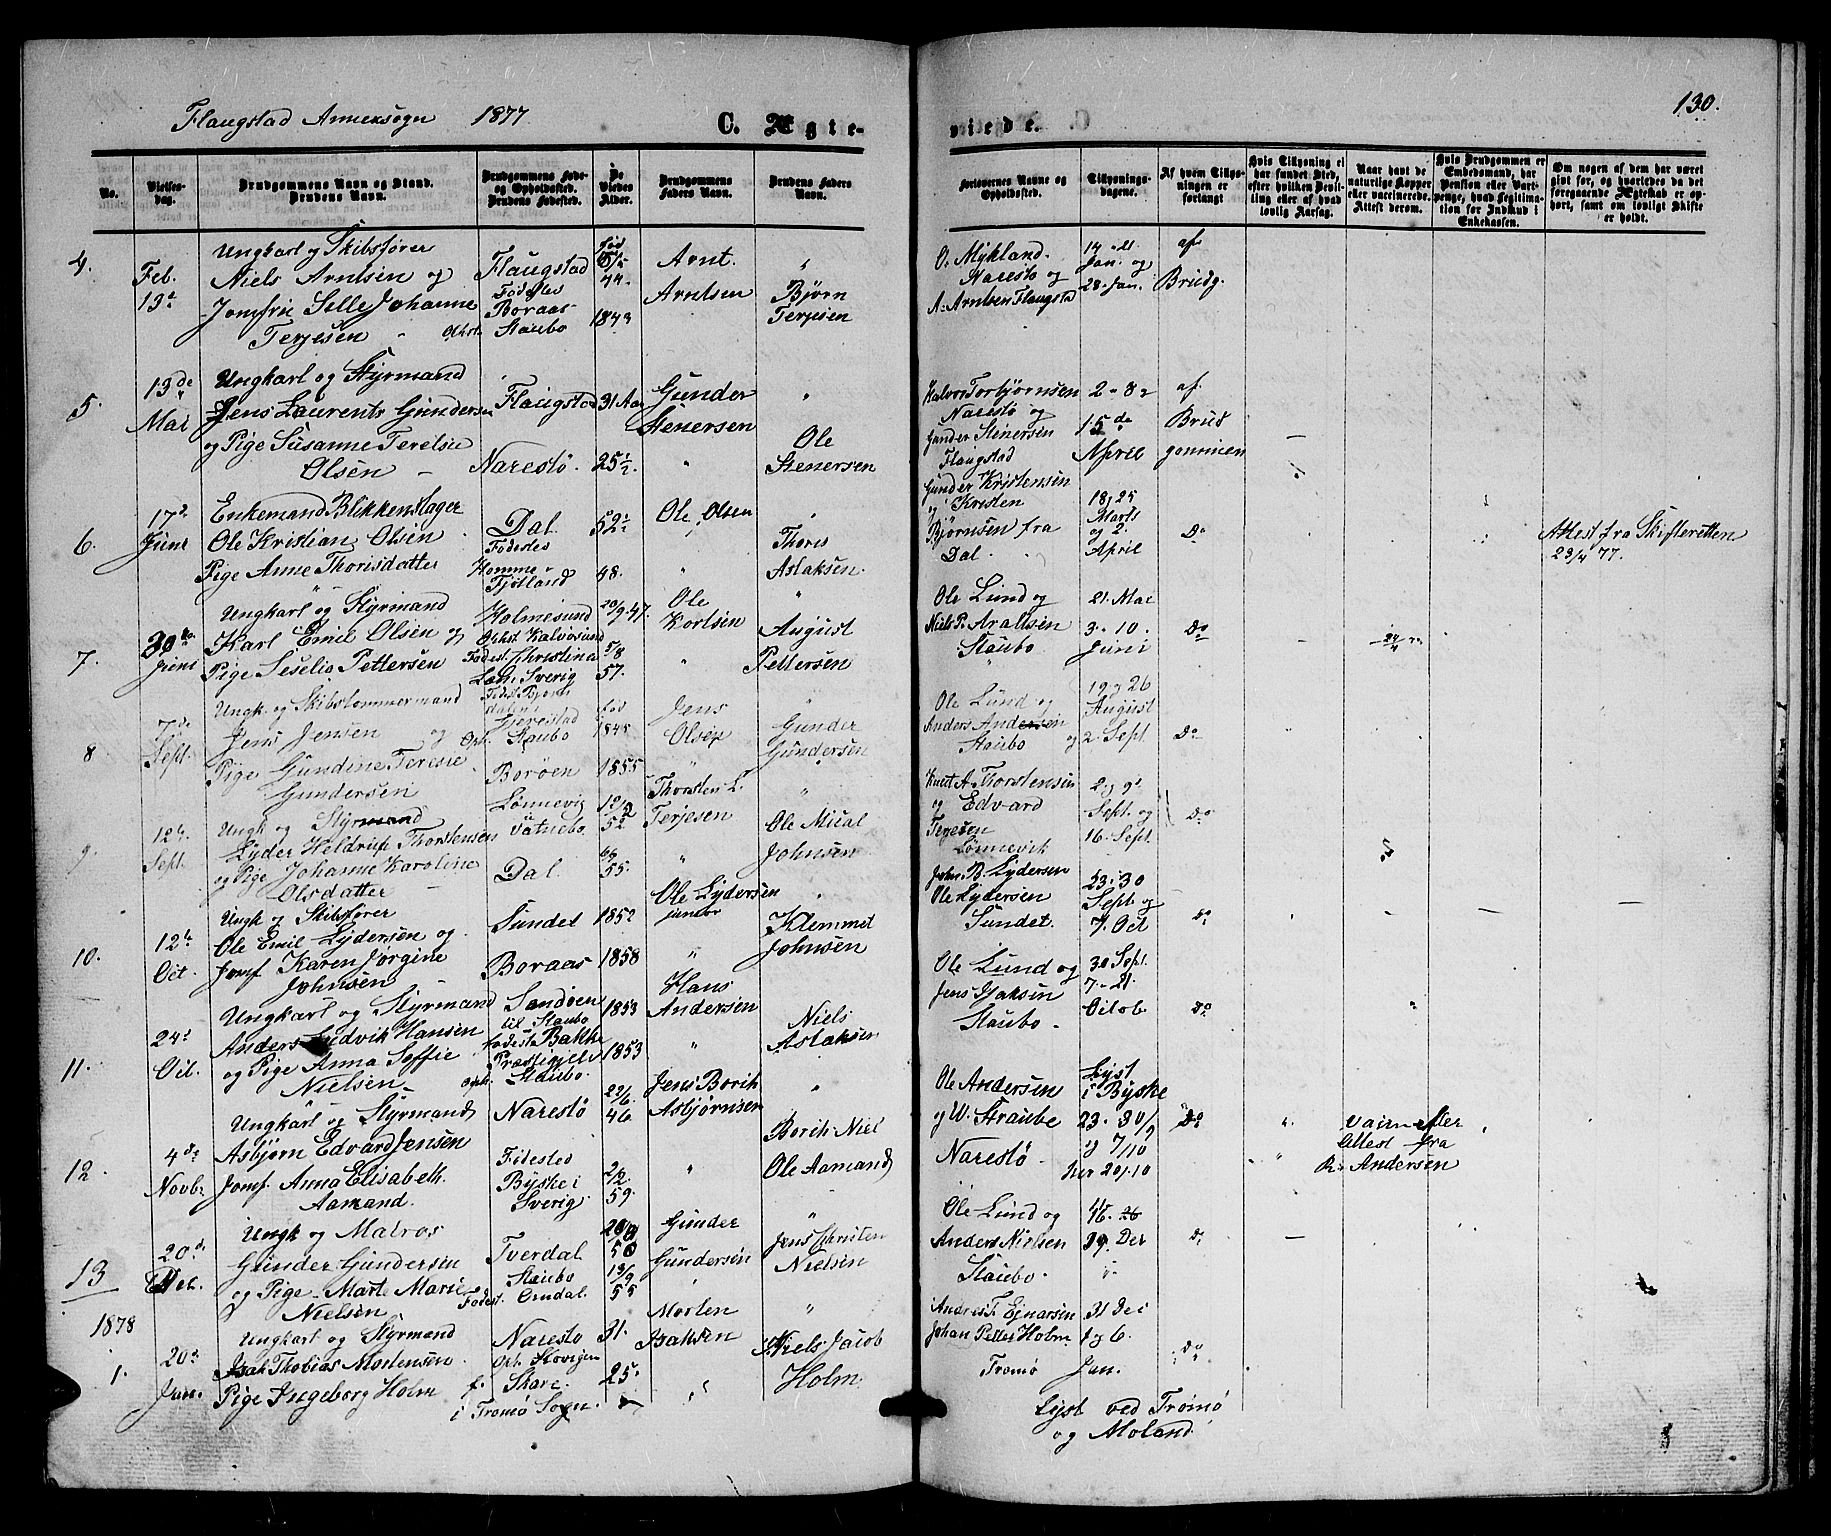 Flaugstad Annexsogn 1877
C. Ægte-
viede.
130.
No.
Vielses-
dag.
Brudgommens Navn og Stand.
Brudens Navn.
Brudgommens Føde-
og Opholdssted.
Brudens Fødested.
De
Viedes
Alder.
Brudgommens
Faders Navn.
Brudens Faders
Navn.
Forlovernes Navne og
Opholdssted.
Tillysnings-
dagene.
Af hvem Tillys-
ningen er
forlangt
Hvis Tillysning ei
har fundet Sted,
efter hvilken Bevil-
ling eller af hvad
lovlig Aarsag.
Naar havt de
naturlige Kopper
eller vaccinerede.
Attest derom.
Hvis Brudgommen er
Embedsmand, har
Pension eller Vart-
penge, hvad Legitima-
tion for Indskud i
Enkekassen.
Om nogen af dem har været
gift før, og hvorledes da det
foregaaende Ægteskab er op-
hørt, samt om lovligt Skifte
er holdt.
4.
Feb.
13d
Ungkarl og Skibsfører
Niels Arntsen og
Jomfru Sille Johanne
Terjesen
Flaugstad
Fødested
Boraas
Staubo
Fød
44.
1843
Arnt
Arntsen
Bjørn
Terjesen
O. Mykland
Narestø og
A. Arntsen Flaugsta
14 - 21
Jan. og
28. Jan.
af
Brudg.
5.
13de
Mai
Ungkarl og Styrmand
Jens Laurents Gundersen
og Pige Susanne Terelsie
Olsen
Flaugstad
Narestø.
31 Aar
25 1/2.
Gunder
Stenersen
Ole
Stenersen
Halvor Torbjørnsen
Narestø og
Gunder Stenersen
Flaugstad
2 - 8 -
15de
April
af
Brud
gommen
6.
17d
Juni
Enkemand Blikkenslager
Ole Kristian Olsen
Pige Anne Thorisdatter
Dal.
Fødested
Homme
Fjotland
52.
48.
Ole Olsen
Thoris
Aslaksen.
Gunder Kristensen
og Kristen
Bjørnsen fra
Dal.
18, 25
Marts
og 2
April
Do
Attest fra Skifteretten
23/4 77.
7.
30te
Juni
Ungkarl og Styrmand
Karl Emil Olsen og
Pige Seselia Pettersen
Holmesund
Ophst. Kalvøsund
Fødest. Christina
Læn, Sverig
20/9 47.
5/8
57.
Ole
Korlsen
August
Pettersen
Ole Lund og
Niels P. Araltsen
Staubo
21. Mai
3. 10.
Juni
Do
8
7de
Sept.
Ungk. og Skibstømmermand
Jens Jensen og
Pige Gundine Teresie
Gundersen
Gjerestad
Oph. Staubo
Borøen
fød
1845
1855
Jens
Olsen
Gunder
Gundersen
Ole Lund og
Anders Andersen
Staubo
19 og 26
August
og 2. Sept
Do
9.
12te
Sept.
Ungk og Styrmand
Lyder Heldrup Thorstensen
og Pige Johanne Karoline
Olsdatter
Lønnevig
Vatnebo
Dal.
52
55.
Thorsten L.
Terjesen
Ole Mical
Johnsen
Knut A. Thorstensen
og Edvard
Terjesen
Lønnevik
2 og 9d
Sept. og
16. Sept.
Do
10.
12te
Oct.
Ungk og Skibsfører
Ole Emil Lydersen og
Jomf. Karen Jørgine
Johnsen
Sundet
Boraas
1852
1858
Ole Lydersen
junior
Klemmet
Johnsen
John. B. Lydersen
Ole Lydersen
Sundet.
23. 30
Sept. og
7. Oct
Do
11.
24d
Oct.
Ungkarl og Styrmand
Anders Ludvik Hansen
og Pige Anna Soffie
Nielsen
Sandøen
til Staubo
Fødested Bakke
Præstegjeld
Oph. Staubo.
1853
1853
Hans
Andersen
Niels
Aslaksen
Ole Lund og
Jens Isaksen
Staubo.
30 Sept.
7 - 21.
Octob
Do
12.
4de
Novb.
Ungkarl og Styrmand
Asbjørn Edvard Jensen
Jomf. Anna Elisabeth.
Aamand.
Narestø
Fødested
Byske i
Sverig
22/6
46
26/2
59.
Jens Borik
Asbjørnsen
Borik Niel
Ole Aamand
Ole Andersen
og W. Straube
Narestø
Lyst
i Byske
23. 30/9
og 7/10
her 20/10
Do
vacin efter
Attest fra
R. Andersen
13
20d
Ungk og Matros
Gunder Gundersen
og Pige Marte Marie
Nielsen
Tverdal.
Staubo
Fødest. Omdal
50
13/9
55
Gunder
Gundersen
Jens Christen
Nielsen
Ole Lund og
Anders Nielsen
Staubo.
Do
1878
1.
20d
Jan.
Ungkarl og Styrmand
Isak Thobias Mortensen
Pige Ingeborg Holm
Narestø
Skare.
i Tromø Sogn
31.
25.
Morten
Isaksen
Niels Jacob
Holm.
Andreas T. Ejnarsen
Johan Petter Holm
Tromø
31 Dec
og 6.
Jan.
Do
Lyst ved Tromø
og Moland